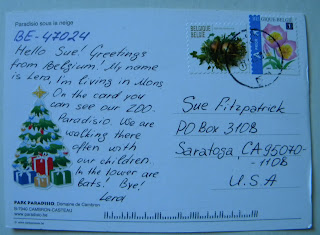 Paradisio sous la neige
BE-47024
Hello Sue! Greetings
from Belgium! My name
is Lera, I'm living in Mons
On the card you
can see our ZOO-
Paradisio. We are
walking there
often with
our children.
In the tower are
bats! Bye!
Lera
PARC PARADISIO, Domaine de Cambron
B-7940 CAMBRON-CASTEAU
www.paradisio.be
BELGIQUE
BELGIË
Sue Fitzpatrick
PO Box 3108
Saratoga, CA 95070-
-1108
U.S.A